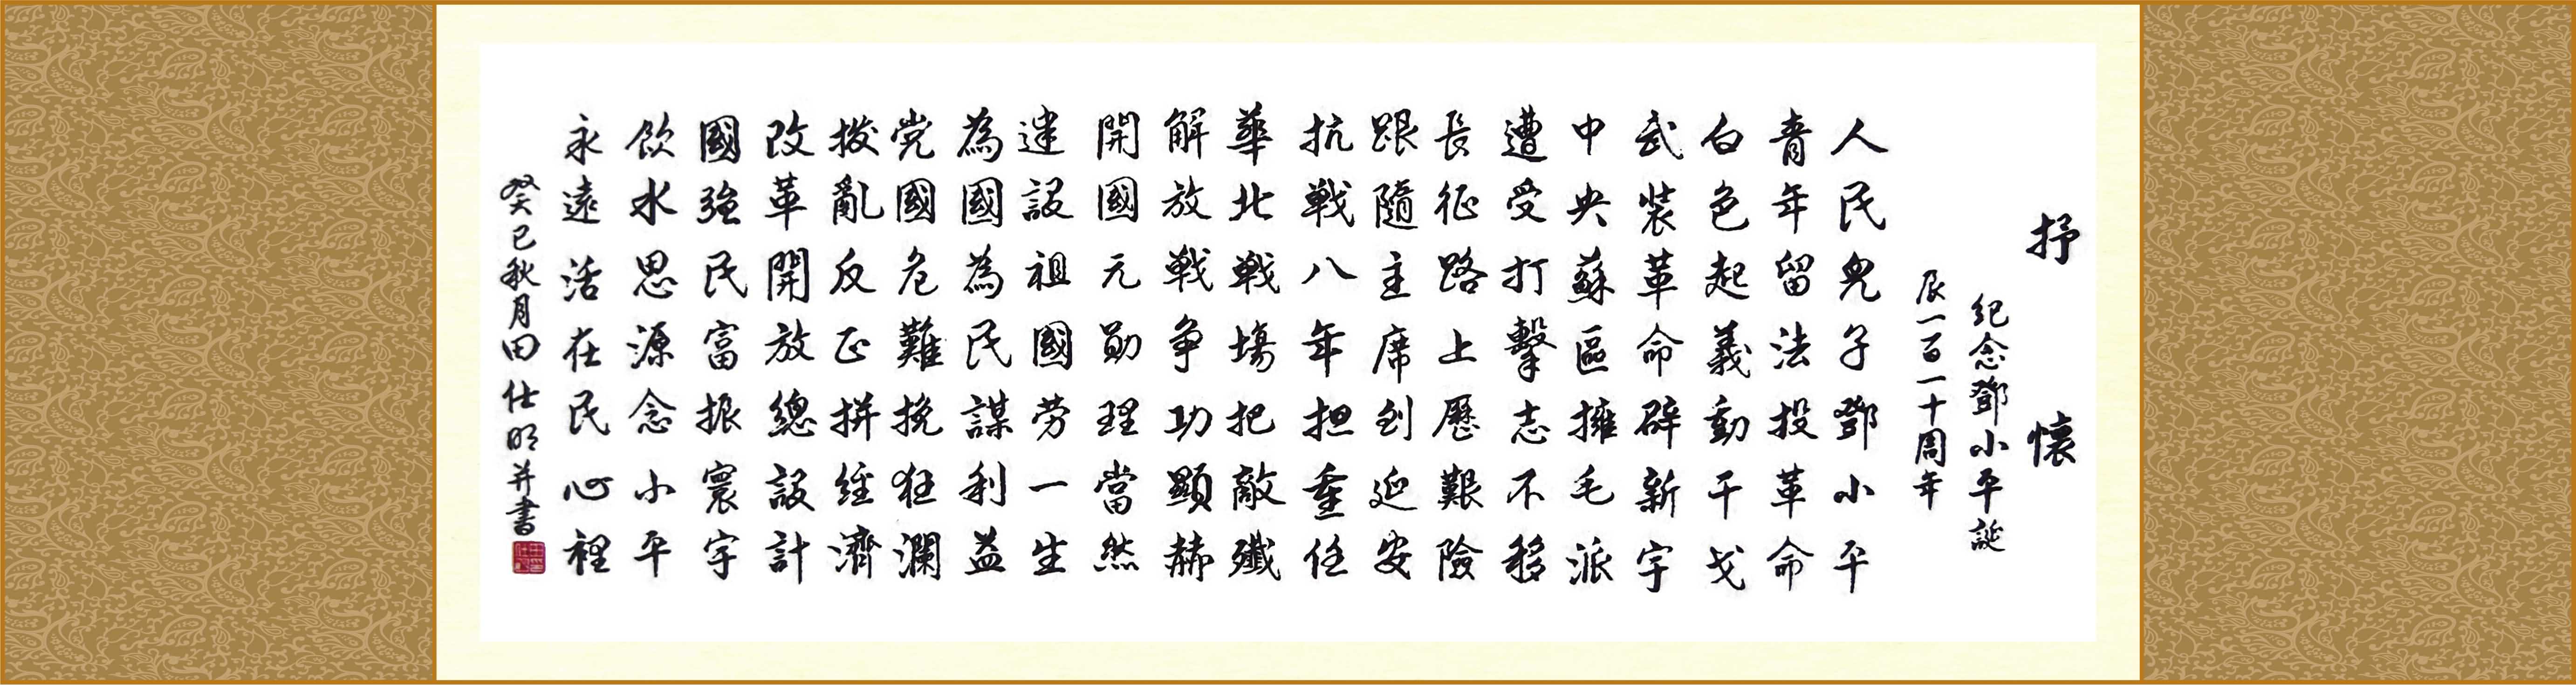 抒懷
紀念鄧小平誕
辰一百一十周年
人民兒子鄧小平
青年留法投革命
白色起義動干戈
武裝革命辟新宇
中央蘇區擁毛派
遭受打擊志不移
長征路上歷艱險
跟隨主席到延安
抗戰八年担重任
華北戰場把敵殲
解放戰争功顯赫
開國元勛理當然
建設祖國劳一生
為國為民謀利益
党國危難挽狂瀾
撥亂反正拼經濟
改革開放總設計
國強民富振寰宇
飲水思源念小平
永遠活在民心裡
癸巳秋月田仕明并書